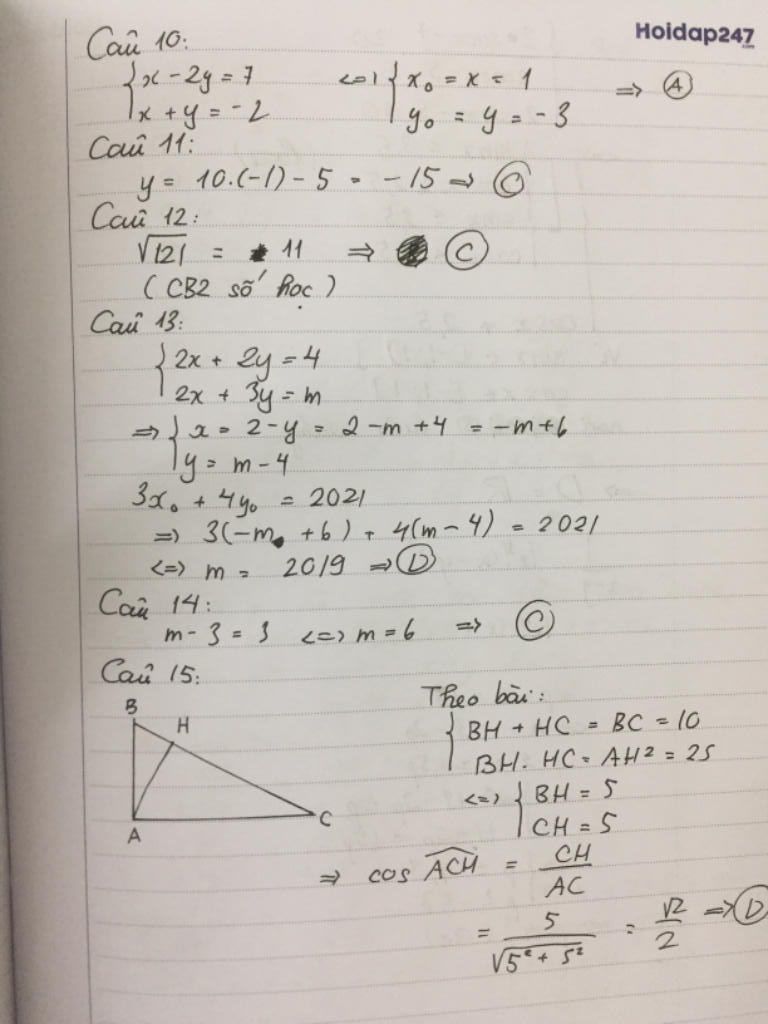 Hoidap247
.com
Câu 10:
{ x - 2y = 7 <=> { x₀ = x = 1 => (A)
x + y = -2 y₀ = y = -3
Câu 11:
y = 10.(-1) - 5 = -15 => (C)
Câu 12:
√121 = 11 => (C)
(CB2 số học)
Câu 13:
{ 2x + 2y = 4
2x + 3y = m
=> { x = 2 - y = 2 - m + 4 = -m + 6
y = m - 4
3x₀ + 4y₀ = 2021
=> 3(-m + 6) + 4(m - 4) = 2021
<=> m = 2019 => (D)
Câu 14:
m - 3 = 3 <=> m = 6 => (C)
Câu 15:
B
H
A
C
Theo bài:
{ BH + HC = BC = 10
BH. HC = AH² = 25
<=> { BH = 5
CH = 5
=> cos ACH = CH / AC
= 5 / √5² + 5² = √2 / 2 => (D)